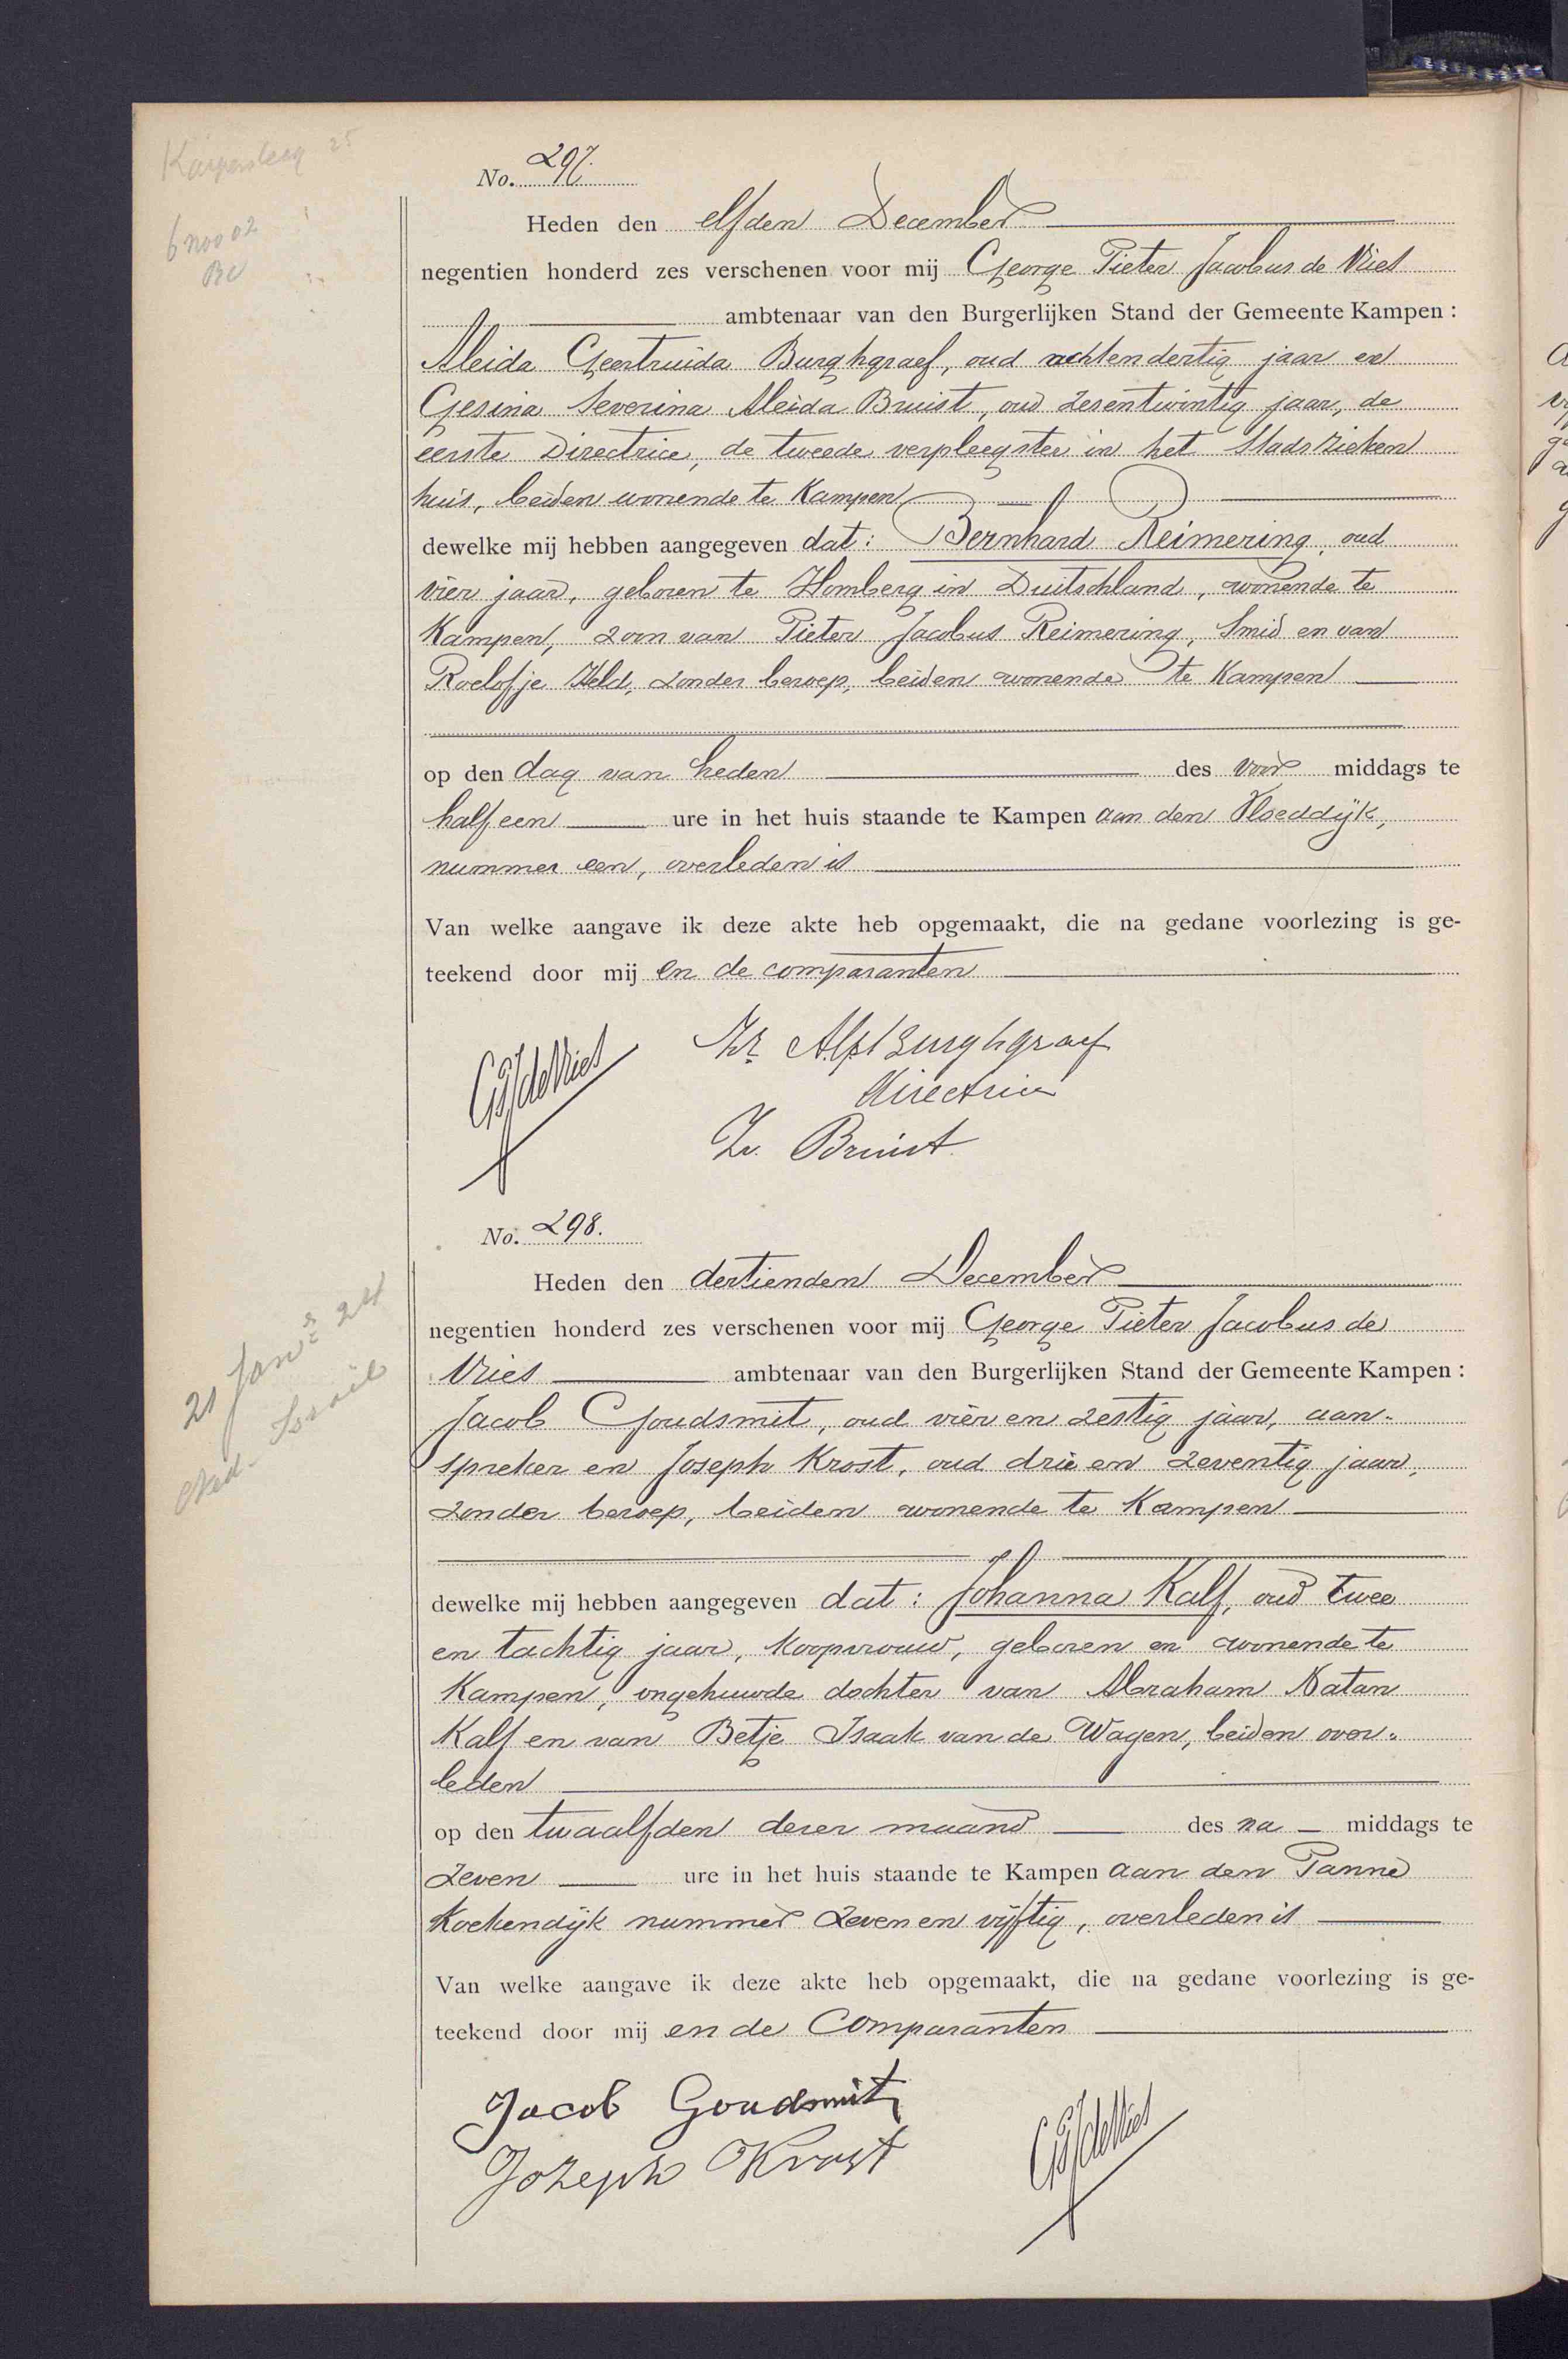 Karpersteeg 25
6 nov 02
No. 297.
Heden den elfden December
negentien honderd zes verschenen voor mij George Pieter Jacobus de Vries
ambtenaar van den Burgerlijken Stand der Gemeente Kampen:
Aleida Geertruida Burghgraef, oud achtendertig jaar en
Gesina Severina Aleida Bruist, oud zesentwintig jaar, de
eerste Directrice, de tweede verpleegster in het Stadszieken
huis, beiden wonende te Kampen
dewelke mij hebben aangegeven dat: Bernhard Reimering, oud
vier jaar, geboren te Homberg in Duitschland, wonende te
Kampen, zoon van Pieter Jacobus Reimering, Smid en van
Roelofje Held, zonder beroep, beiden wonende te Kampen
op den dag van heden des voor middags te
half een ure in het huis staande te Kampen aan den Vloeddijk,
nummer een, overleden is
Van welke aangave ik deze akte heb opgemaakt, die na gedane voorlezing is ge-
teekend door mij en de comparanten
GPJdeVries Zr. Burghgraef
Directrice
Zr. Bruist
No. 298.
Heden den dertienden December
negentien honderd zes verschenen voor mij George Pieter Jacobus de
Vries ambtenaar van den Burgerlijken Stand der Gemeente Kampen:
21 Jan 24
Ned. Israël
Jacob Goudsmit, oud vier en zestig jaar, aan-
spreker en Joseph Krost, oud drie en zeventig jaar,
zonder beroep, beiden wonende te Kampen
dewelke mij hebben aangegeven dat: Johanna Kalf, oud twee
en tachtig jaar, koopvrouw, geboren en wonende te
Kampen, ongehuwde dochter van Abraham Natan
Kalf en van Betje Isaak van de Wagen, beiden over-
leden
op den twaalfden dezer maand des na middags te
zeven ure in het huis staande te Kampen aan den Panne
koekendijk nummer zeven en vijftig, overleden is
Van welke aangave ik deze akte heb opgemaakt, die na gedane voorlezing is ge-
teekend door mij en de Comparanten
Jacob Goudsmit
Jozeph Krost GPJdeVries